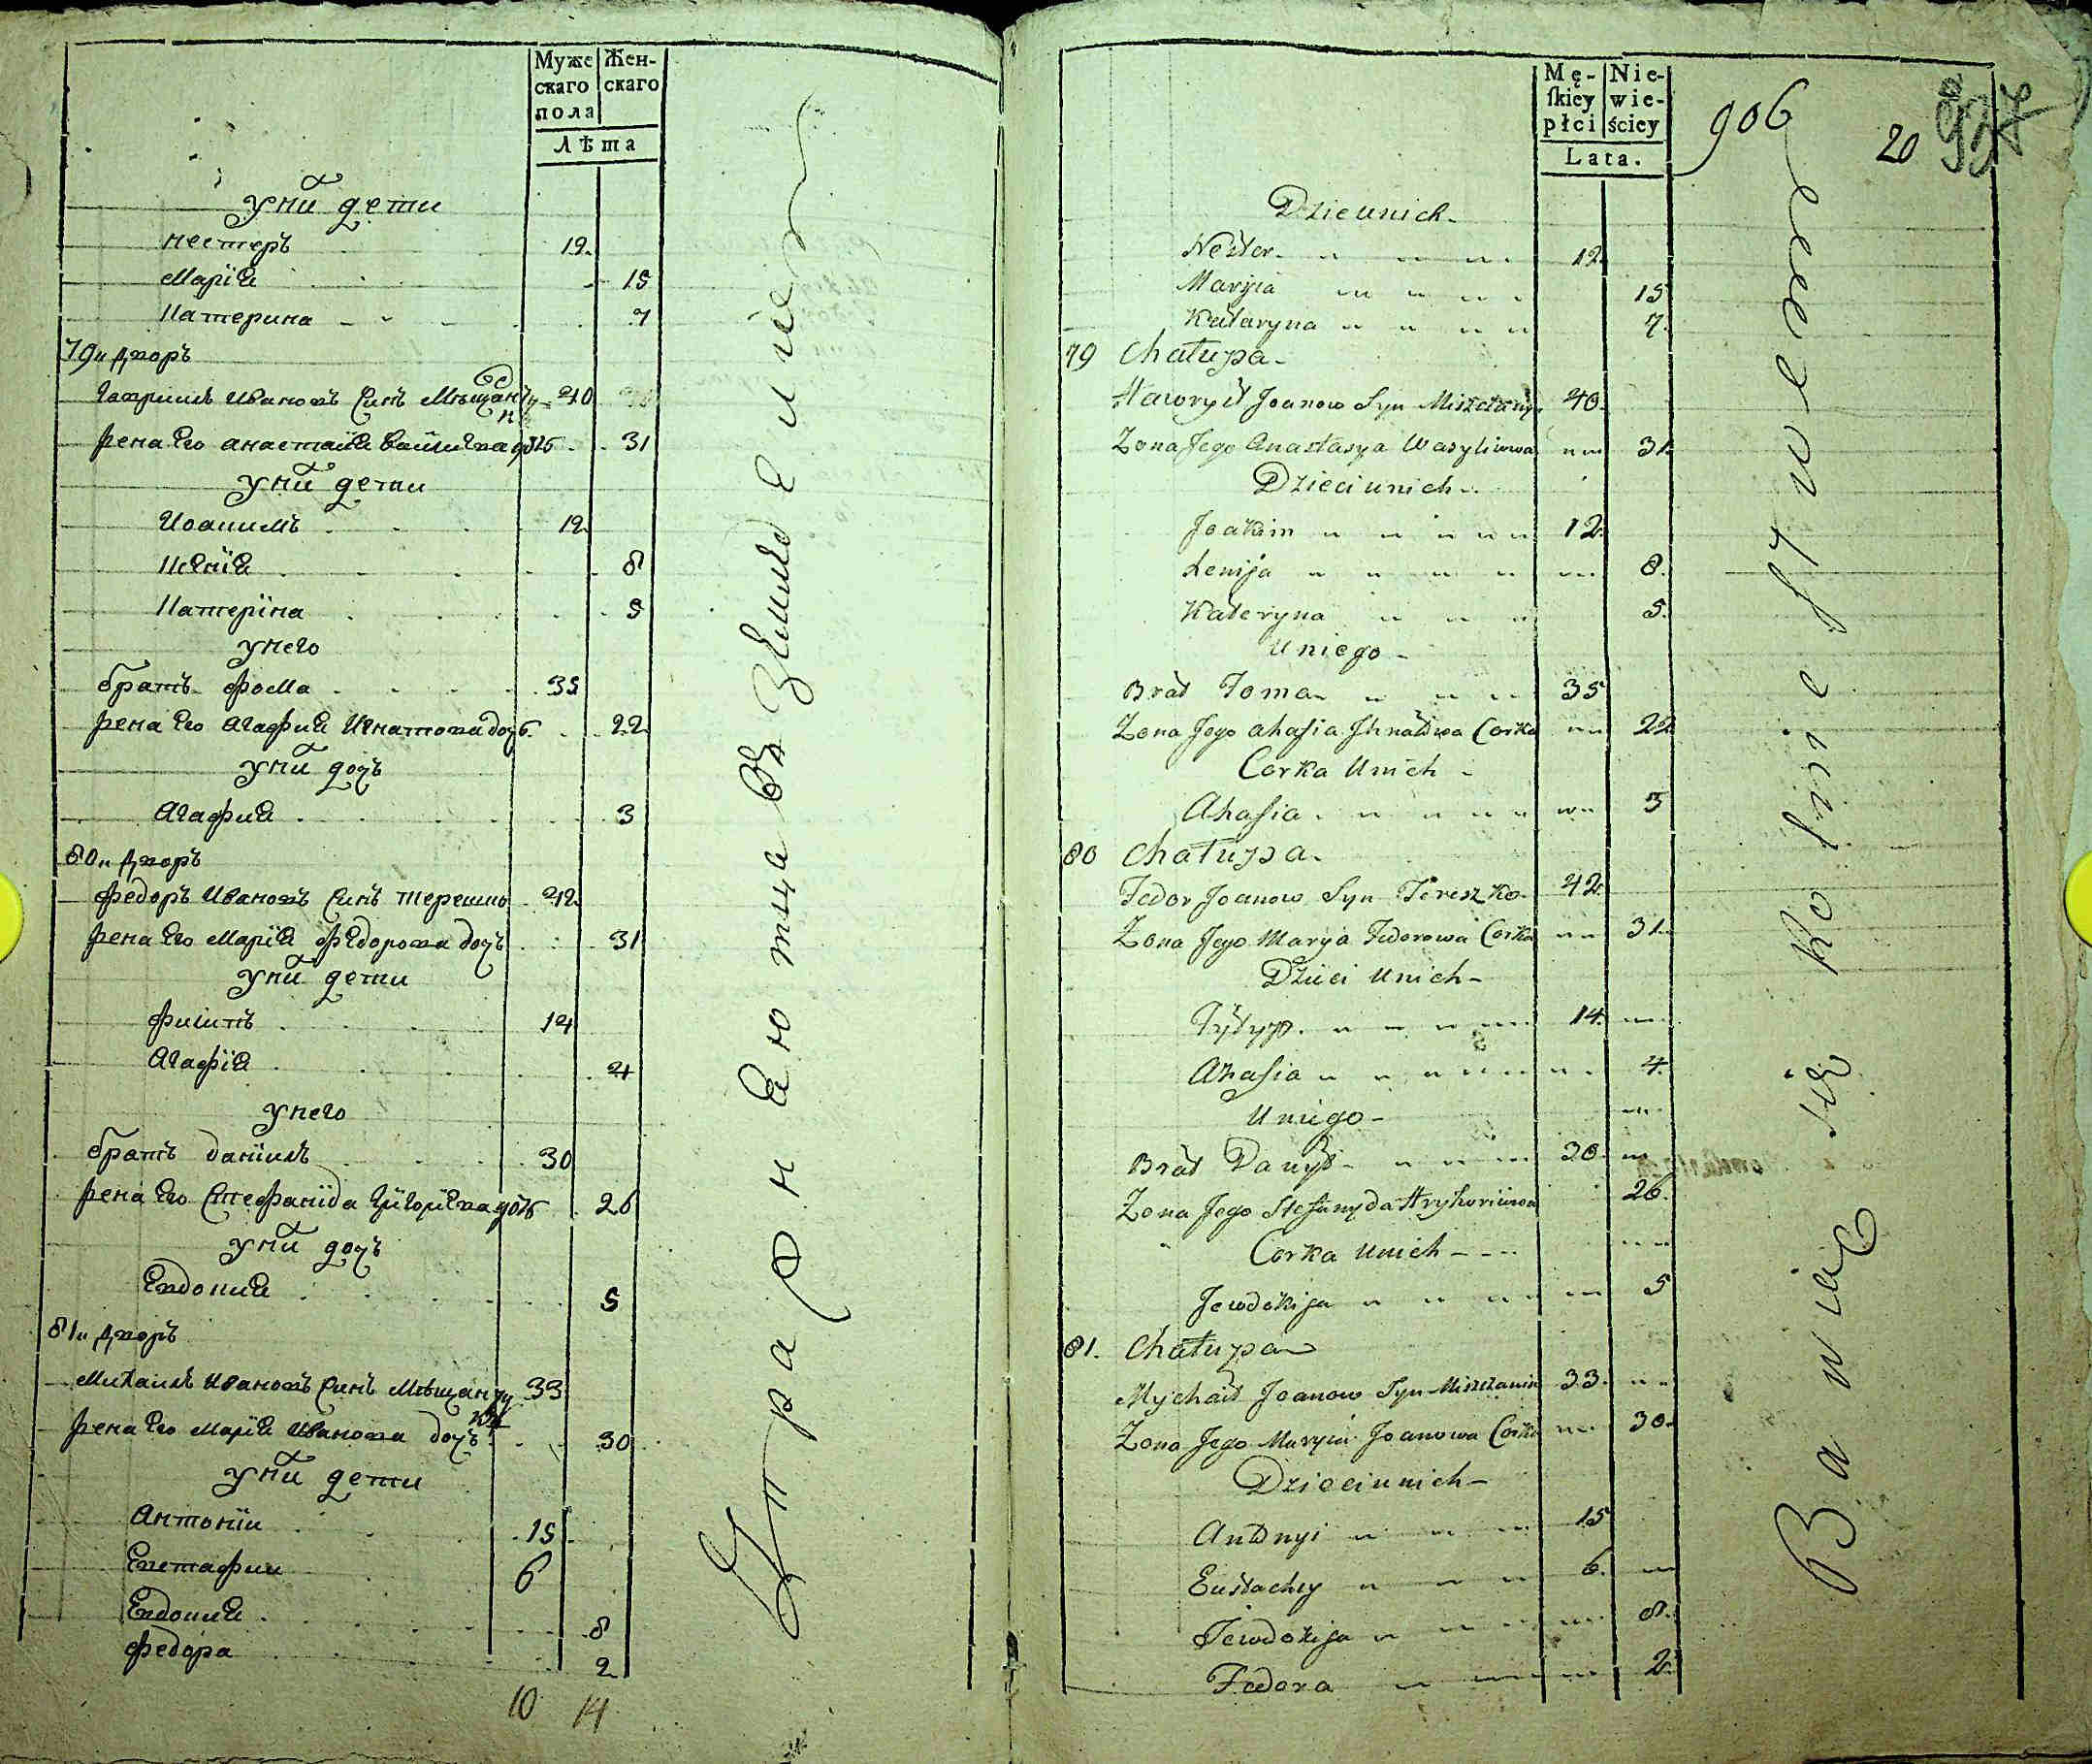 Муже Жен-
скаго скаго
пола
Лѣта
у них дети
нестеръ 12
Марїя 15
Катерина 7
79й дворъ
Гаврилъ Ивановъ синъ Мѣщан 40
жена Его анастасїя Василиева дочь 31
у них дети
Иоакимъ 12
Ксенїя 8
Катерїна 5
у него
братъ фома 35
жена Его агафия Игнатова дочь 22
у них дочъ
Агафия 3
80й дворъ
федоръ Ивановъ синъ терешко 42
жена Его Марїя федорова дочъ 31
у них дети
филипъ 14
Агафїя 4
у него
братъ данїилъ 30
жена Его Стефанїда Григорїева дочь 26
у них дочъ
Евдокия 5
81й дворъ
Михаилъ Ивановъ синъ Мѣщан 33
жена Его Марїя Иванова дочъ 30
у них дети
Антонїи 15
Евстафии 6
Евдокия 8
федора 2
10 14
Упражняютца въ Земледелии
Mę- Nie-
ſkiey wie-
płci ściey
Lata.
906
20
927
Dzieunich
Nester 12
Maryia 15
Kataryna 7
79 Chałupa
Hawrył Joanow Syn Miszczanyn 40
Zona Jego Anastasya Wasyliowa 31
Dzieci unich
Joakim 12
Xenija 8
Kateryna 5
Uniego
Brat Toma 35
Zona Jego ahafia Jhnatowa Corka 22
Corka Unich
Ahafia 3
80 Chałupa
Fedor Joanow Syn Tereszko 42
Zona Jego Marya Fedorowa Corka 31
Dzieci Unich
Fyłyp 14
Ahafia 4
Uniego
Brat Danyło 30
Zona Jego Stefanyda Hryhoriiowa 26
Corka Unich
Jewdokija 5
81. Chałupa
Mychaił Joanow Syn Miszczanin 33
Zona Jego Maryia Joanowa Corka 30
Dzieci unich
Antonyi 15
Eustachy 6
Jewdokija 8
Fedora 2
Bawią się Rolnictwem